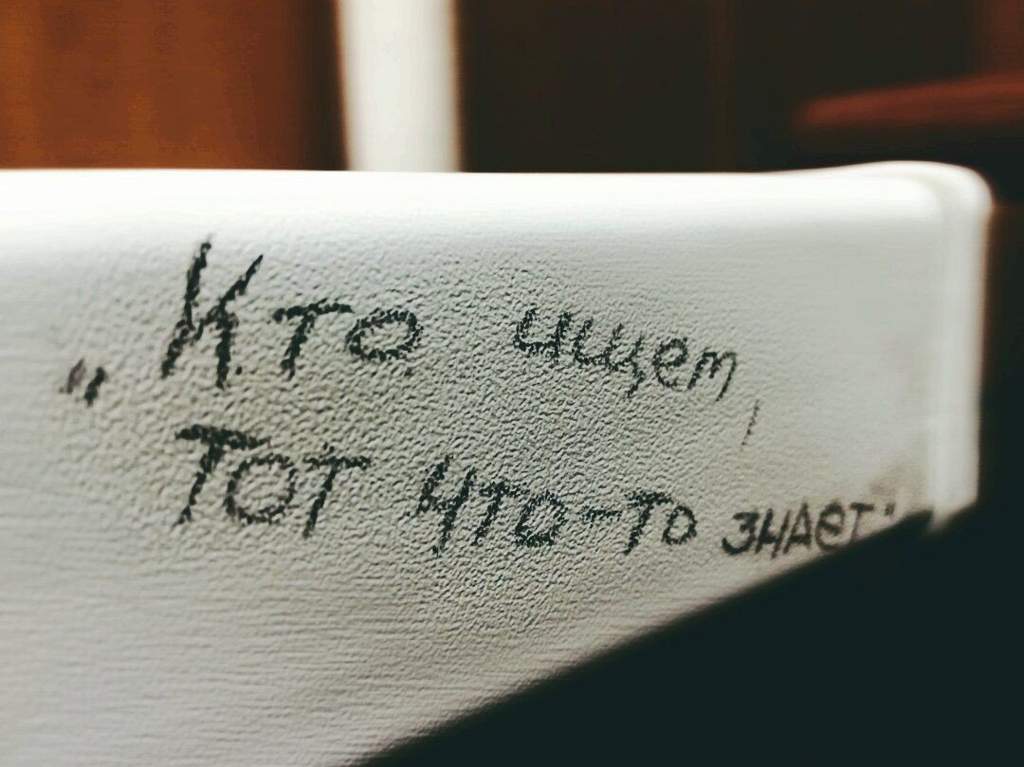 „Кто ищет,
Тот что-то знает“